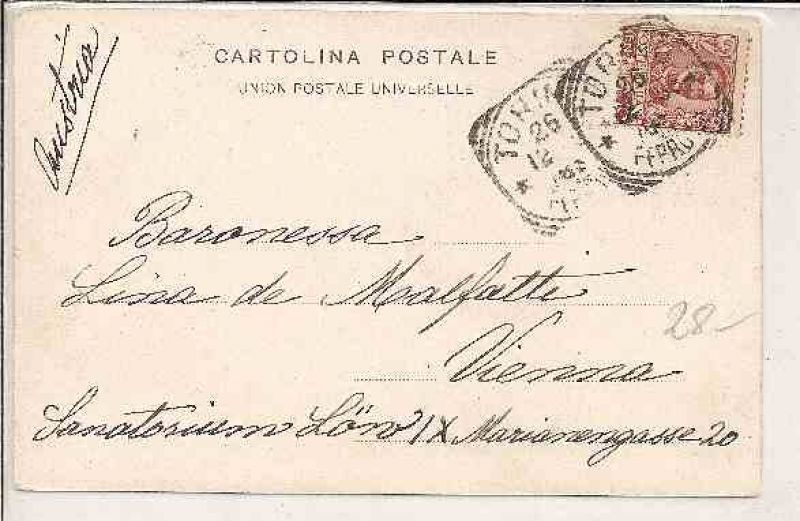 Austria
CARTOLINA POSTALE
UNION POSTALE UNIVERSELLE
TORINO
26
12
TOR
26
FERROV
Baronessa
Lina de Malfatti
28-
Vienna
Sanatorium Löw IX Marianengasse 20